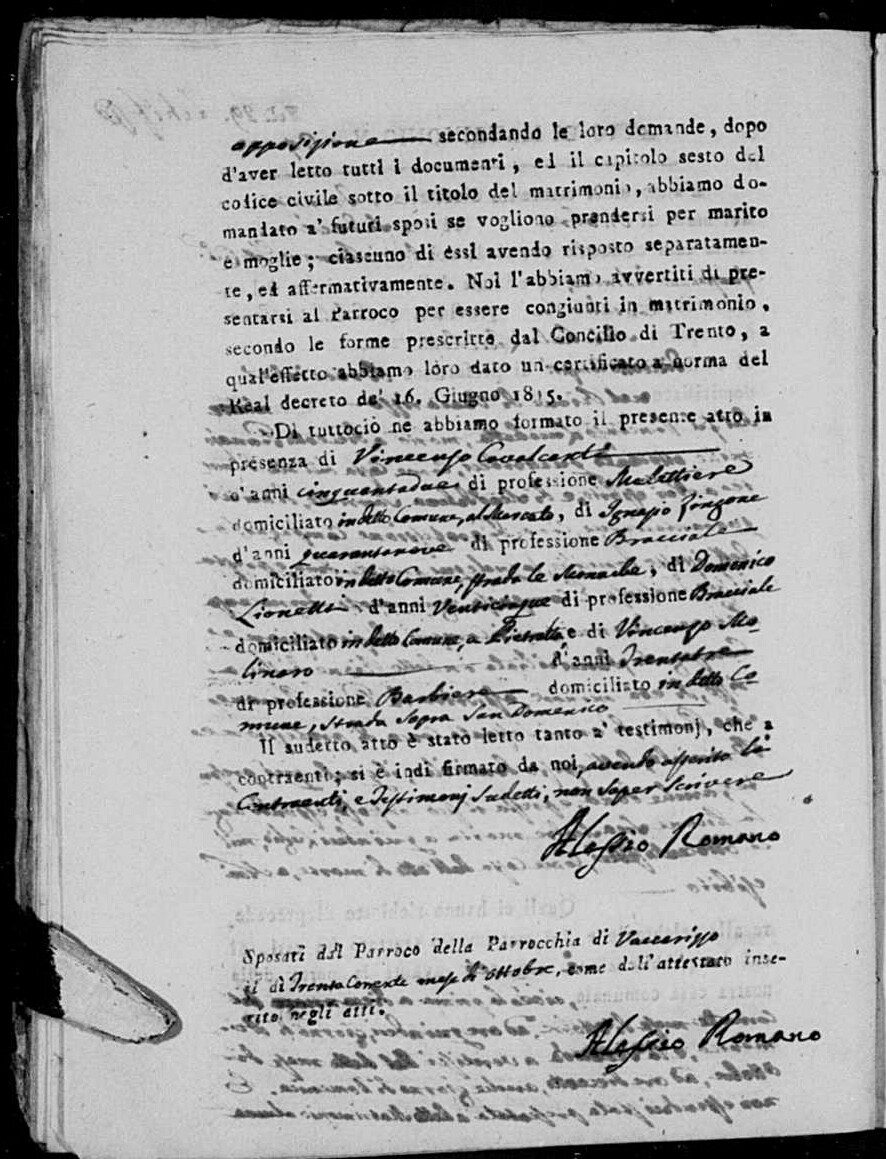 opposizione secondando le loro demande, dopo
d'aver letto tutti i documenti, ed il capitolo sesto del
codice civile sotto il titolo del matrimonio, abbiamo do-
mandato a' futuri sposi se vogliono prendersi per marito
e moglie; ciascuno di essi avendo risposto separatamen-
te, ed affermativamente. Noi l'abbiamo avvertiti di pre-
sentarsi al Parroco per essere congiunti in matrimonio,
secondo le forme prescritte dal Concilio di Trento, a
qual'effetto abbiamo loro dato un certificato a norma del
Real decreto de' 16. Giugno 1815.
Di tuttociò ne abbiamo formato il presente atto in
presenza di Vincenzo Cavalcanti
d'anni cinquantadue di professione
domiciliato in detto Comune, al Mercato, di Ignazio Zingone
d'anni quarantanove di professione Bracciale
domiciliato in detto Comune, strada le Monache, di Domenico
Lionetti d'anni Venticinque di professione Bracciale
domiciliato in detto Comune, a e di Vincenzo Mo-
linaro d'anni Trentatre
di professione Barbiere domiciliato in detto Co
mune, strada sopra San Domenico
Il sudetto atto è stato letto tanto a' testimonj, che a
contraenti; si è indi firmato da noi, avendo asserito li
Contraenti, e Testimonj sudetti, non saper scrivere
Alessio Romano
Sposati dal Parroco della Parrocchia di Vaccarizzo
il dì Trenta Corrente mese di Ottobre, come dall'attestato inse-
rito negli atti.
Alessio Romano